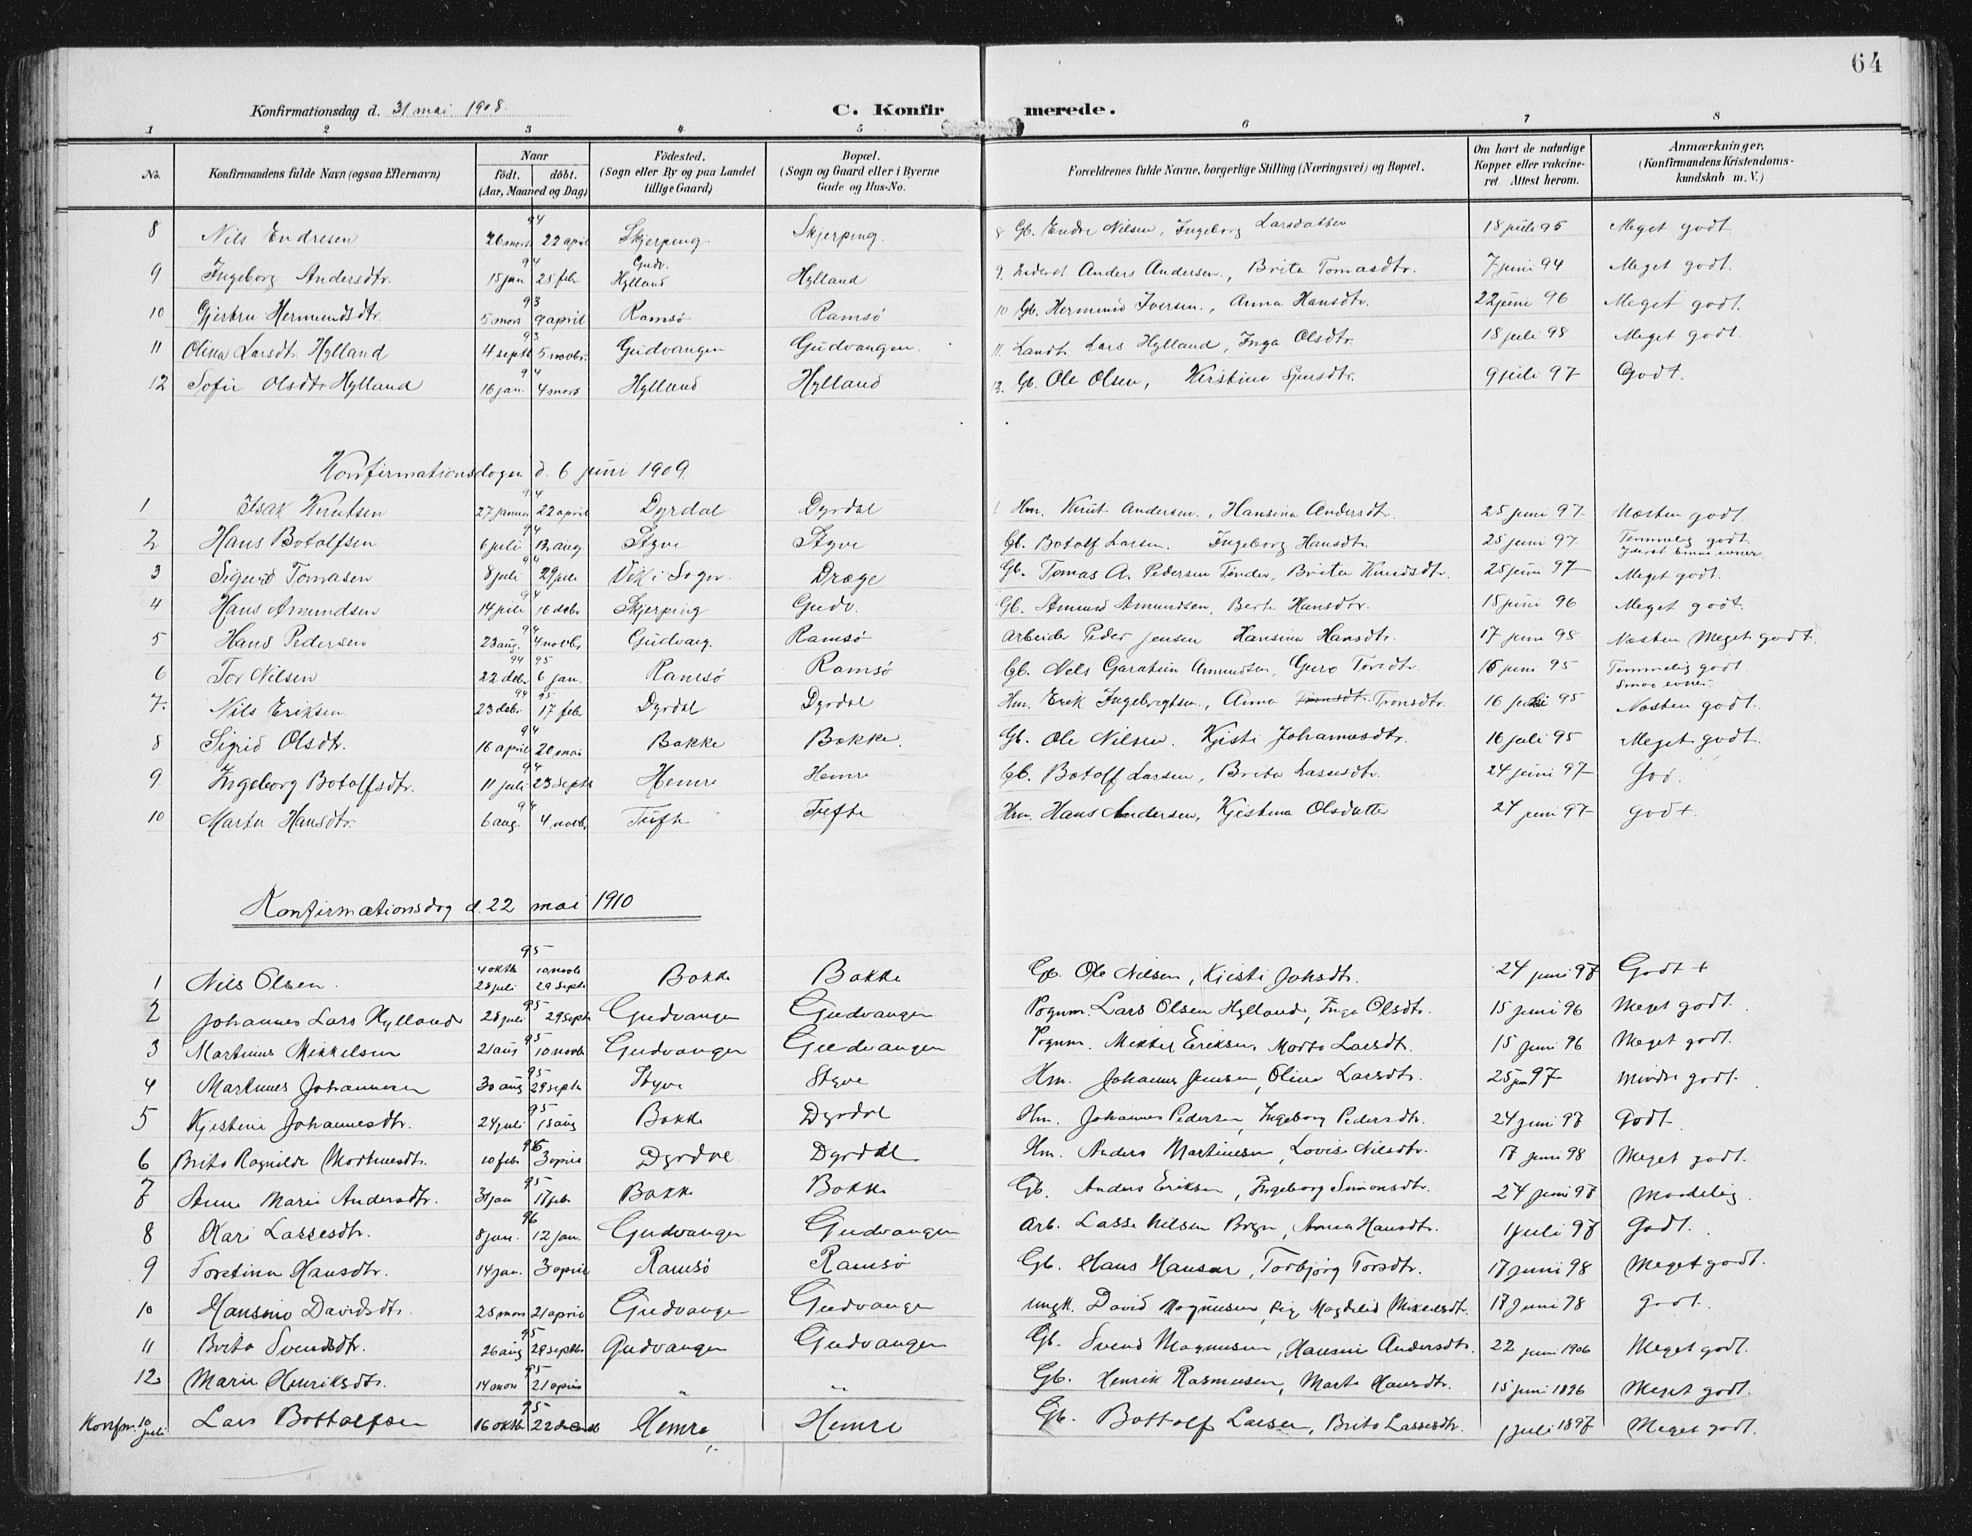 64
Konfirmationsdag d. 31 mai 1908. C. Konfirmerede.
1 2 3 4 5 6 7 8
No. Konfirmandens fulde Navn (ogsaa Efternavn) Naar født. døbt. (Aar, Maaned og Dag) Fødested. (Sogn eller By og paa Landet tillige Gaard) Bopæl. (Sogn og Gaard eller i Byerne Gade og Hus-No. Forældrenes fulde Navne, borgerlige Stilling (Næringsvei) og Bopæl. Om havt de naturlige Kopper eller vakcineret. Attest herom. Anmærkninger. (Konfirmandens Kristendomskundskab m. V.)
8 Nils Endresen 94 26 mars 22 april Skjerping Skjerping. 8 Gb. Endre Nilsen, Ingeborg Larsdatter 18 juli 95 Meget godt
9 Ingeborg Andersdtr. 94 15 jan 25 feb. Gudv. Hylland Hylland 9. Anders Andersen, Brita Tomasdtr. 7 juni 94 Meget godt.
10 Gjertru Hermundsdtr. 93 5 mars 9 april Ramsø Ramsø 10 Gb. Hermund Iversen, Anna Hansdtr. 22 juni 96 Meget godt.
11 Olina Larsdtr. Hylland 93 4 septb 5 novbr. Gudvangen Gudvangen. 11. Landh. Lars Hylland, Inga Olsdtr. 18 juli 98 Meget godt.
12 Sofie Olsdtr Hylland 94 16 jan. 4 mars Hylland Hylland 12. Gb. Ole Olsen, Kirstina Sjursdtr. 9 juli 97 Godt.
Konfirmationsdagen d. 6 juni 1909.
1 Isak Knutsen 94 27 januar 22 april Dyrdal Dyrdal 1 Hm. Knut Andersen, Hansina Andersdtr. 25 juni 97 Næsten godt.
2 Hans Botolfsen 94 6 juli 12 aug Styve Styve Gb. Botolf Larsen. Ingeborg Hansdtr. 25 juni 97 Temmelig godt Yderst smaa evner.
3 Sigurd Tomasen 94 8 juli 29 juli Vik i Sogn. Dræge Gb. Tomas A. Pedersen Tønder, Brita Knudsdtr. 25 juni 97 Meget godt.
4 Hans Amundsen 94 14 juli 16 debr. Skjerping Gudv. Gb. Amund Amundsen, Berta Hansdtr. 15 juni 96 Meget godt.
5 Hans Pedersen 94 23 aug. 4 novbr. Gudvang. Ramsø Arbeide Peder Jensen Hansina Hansdtr. 17 juni 98 Næsten Meget godt.
6 Tor Nilsen 94 95 22 debr 6 jan. Ramsø Ramsø Gb. Nels Garatun Amundsen, Guro Torsdtr. 16 juni 95 Temmelig godt. Smaa evner
7. Nils Eriksen. 94 95 23 debr. 17 feb. Dyrdal Dyrdal Hm. Erik Ingebrigtsen, Anna Tronsdtr. 16 juli 95 Næsten godt.
8 Sigrid Olsdtr. 94 16 april 20 mai Bakke Bakke. Gb. Ole Nilsen. Kjisti Johannesdtr. 16 juli 95 Meget godt.
9 Ingeborg Botolfsdtr. 94 11 juli 23 septb Hemre Hemre Gb. Botolf Larsen, Brita Lassesdtr. 24 juni 97 God.
10 Marta Hansdtr. 94 6 aug. 4 novbr Tufte Tufte Hm. Hans Andersen, Kjistina Olsdatter 24 juni 97 Godt.
Konfirmationsdag d. 22 mai 1910
1 Nils Olsen. 95 4 oktb 10 novb 28 juli 29 septb Bakke Bakke Gb. Ole Nilsen, Kjisti Johsdtr. 24 juni 97 Godt +
2 Johannes Lars Hylland 95 28 juli 29 septb Gudvangen Gudvangen Lars Olsen Hylland, Inga Olsdtr. 15 juni 96 Meget godt.
3 Martinus Mikkelsen 95 21 aug 10 novb Gudvangen Gudvangen Mikkel Eriksen, Marta Larsdtr. 15 juni 96 Meget godt.
4 Martinus Johannesen 95 30 aug 29 septb Styve Styve Hm. Johannes Jensen, Oline Larsdtr. 25 jun 97 Mindre godt.
5 Kjestine Johannesdtr. 95 24 juli 18 aug Bakke Dyrdal Hm. Johannes Pedersen, Ingeborg Pedersdtr. 24 juni 97 Godt.
6 Brita Ragnilde 10 febr 3 april Dyrdal Dyrdal Hm. Anders Martinesen, Lovise Nilsdtr. 17 juni 98 Meget godt.
7 Anne Marie Andersdtr. 95 31 jan 17 feb. Bakke Bakke Gb. Anders Eriksen, Ingeborg Simonsdtr. 24 juni 97 Maadelig.
8 Kari Lassesdtr. 96 8 jan. 12 jan. Gudvangen Gudvangen Arb. Lasse Nilsen, Anna Hansdtr. 1 juli 97 Godt.
9 Torstina Hansdtr. 14 jan. 3 april Ramsø Ramsø Gb. Hans Hansen, Torbjørg Torsdtr. 17 juni 98 Meget godt.
10 Hansine Davidsdtr. 25 mars 21 april Gudvangen Gudvangen Ungk. David Magnusen, Pig. Magdeli Mikkelsdtr. 17 juni 98 Godt.
11 Brita Svendsdtr. 95 26 aug 29 septb Gudvangen Gudvangen Gb. Svend Magnusen, Hansine Andersdtr. 22 juni 1906 Meget godt.
12 Marie Henriksdtr. 95 14 mars 21 april „ „ Gb. Henrik Rasmusen, Marta Hansdtr. 15 juni 1896 Meget godt.
Konfm. 10 juli Lars Bottolfsen 95 16 oktb 22 decemb Hemre Hemre Gb. Bottolf Larsen, Brita Lassesdtr. 1 juli 1897 Meget godt.